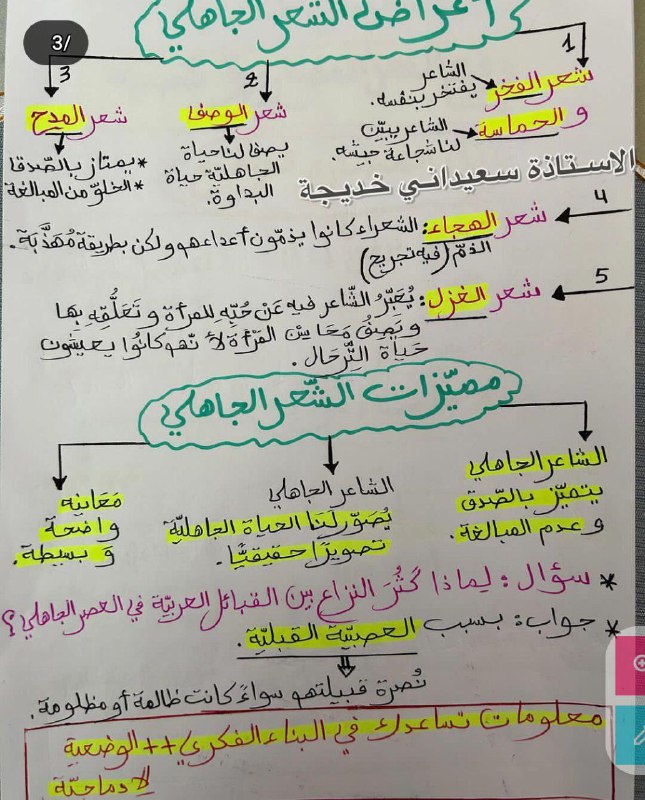 3/
أغراض الشعر الجاهلي
1
شعر الفخر
و الحماسة
الشاعر
يفتخر بنفسه.
الشاعر يبيّن
لنا شجاعة جيشه.
2
شعر الوصف
يصف لنا حياة
الجاهليّة حياة
البداوة.
3
شعر المدح
*يمتاز بالصّدق
*الخلوّ من المبالغة
الاستاذة سعيداني خديجة
4
شعر الهجاء: الشعراء كانوا يذمّون أعداءهم ولكن بطريقة مُهَذَّبَة.
الذمّ (فيه تجريح)
5
شعر الغزل: يُعَبِّرُ الشّاعر فيه عَنْ حُبِّهِ للمرأة و تَعَلُّقِهِ بها
و يَصِفُ مَحَاسِنَ المَرْأة لأنّهم كانُوا يعيشون
حَيَاة التِّرحَال.
مميّزات الشّعر الجاهلي
الشاعر الجاهلي
يتميّز بالصّدق
و عدم المبالغة.
الشاعر الجاهلي
يُصَوِّر لنَا الحياة الجاهليّة
تصويرًا حقيقيًّا.
مَعَانِيه
واضحة
و بسيطة.
* سؤال: لماذا كَثُرَ النزاع بين القبائل العربيّة في العصر الجاهلي؟
* جواب: بسبب العصبيّة القبليّة.
نُصرة قبيلتهم سواءً كانت ظالمة أو مظلومة.
معلومات تساعدك في البناء الفكري ++ الوضعية
لإدماجيّة